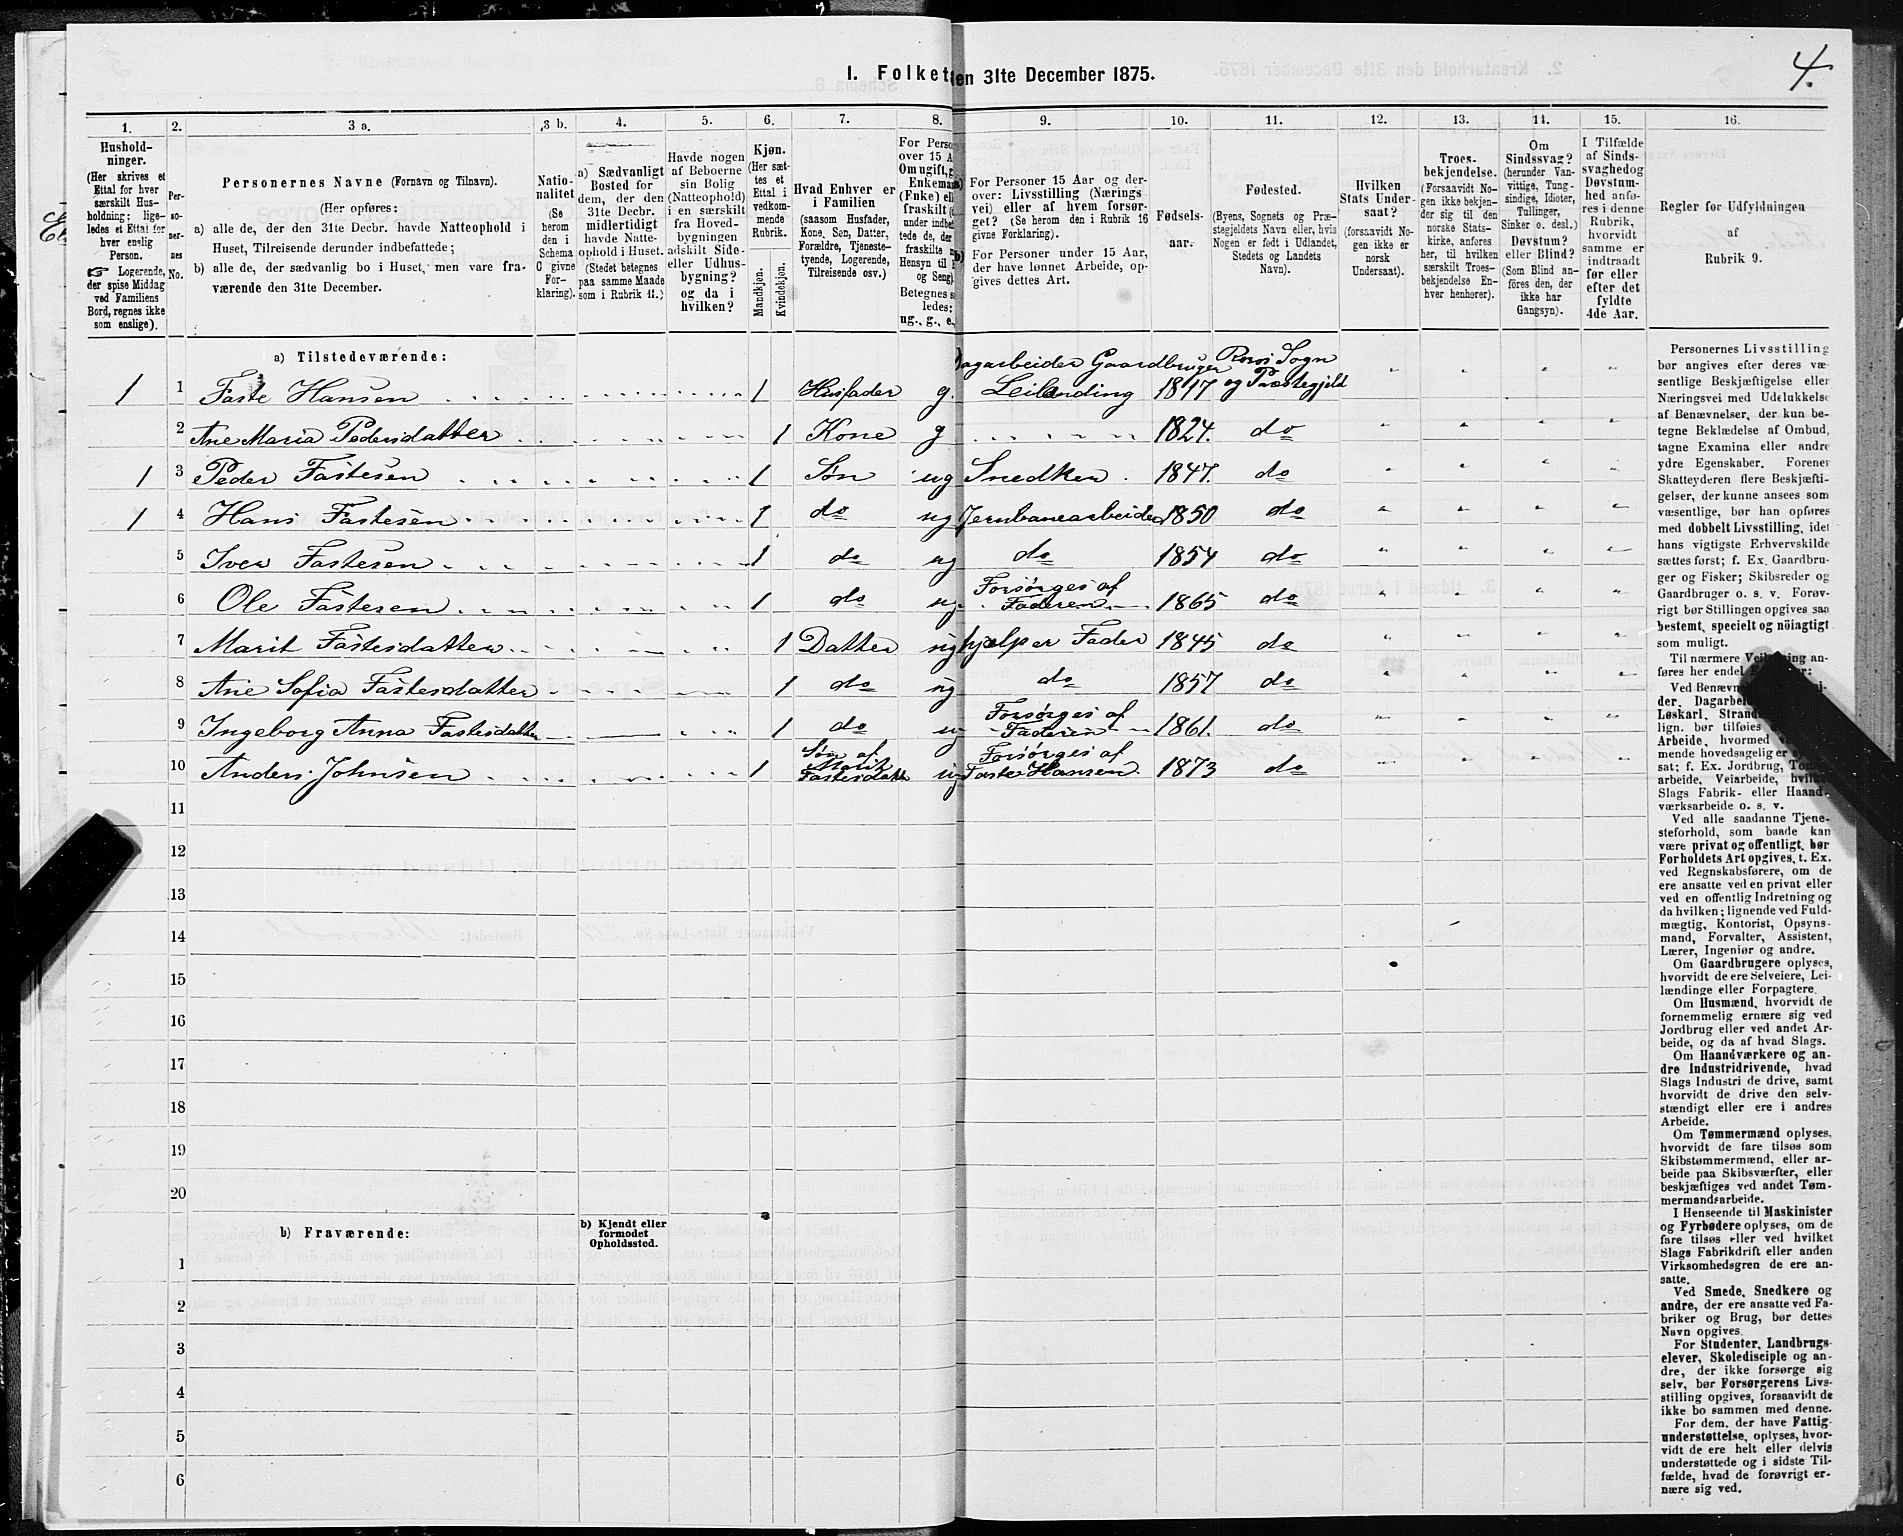 4.
1. Folket
den 31te December 1875.
1.
2.
3 a.
3 b.
4.
5.
6.
7.
8.
9.
10.
11.
12.
13.
14.
15.
16.
Hushold-
ninger.
(Her skrives et
Ettal for hver
særskilt Hus-
holdning; lige-
ledes et Ettal for
hver enslig
Person.
Logerende,
der spise Middag
ved Familiens
Bord, regnes ikke
som enslige).
Per-
so-
ner-
nes
No.
Personernes Navne (Fornavn og Tilnavn).
(Her opføres:
a) alle de, der den 31te Decbr. havde Natteophold i
Huset, Tilreisende derunder indbefattede;
b) alle de, der sædvanlig bo i Huset, men vare fra-
værende den 31te December.
Natio-
nalitet
(Se
herom
den i
Schema
C givne
For-
klaring).
a) Sædvanligt
Bosted for
dem, der den
31te Decbr.
midlertidigt
havde Natte-
ophold i Huset.
(Stedet betegnes
paa samme Maade
som i Rubrik 11.)
Havde nogen
af Beboerne
sin Bolig
(Natteophold)
i en særskilt
fra Hoved-
bygningen
adskilt Side-
eller Udhus-
bygning?
og da i
hvilken?
Kjøn.
(Her sæt-
tes et
Ettal i
vedkom-
mende
Rubrik.
Mandkjøn.
Kvindekjøn.
Hvad Enhver er
i Familien
(saasom Husfader,
Kone, Søn, Datter,
Forældre, Tjeneste-
tyende, Logerende,
Tilreisende osv.)
For Perso
over 15 A
Om ugift, g
Enkeman
(Enke) ell
fraskilt (
under indbe
tede de, der
fraskilte
Hensyn til
og Seng).
Betegnes s
ledes:
ug., g., e.,
a)
For Personer 15 Aar og der-
over: Livsstilling (Nærings
vei) eller af hvem forsør-
get? (Se herom den i Rubrik 16
givne Forklaring).
b)
For Personer under 15 Aar,
der have lønnet Arbeide, op-
gives dettes Art.
Fødsels-
aar.
Fødested.
(Byens, Sognets og Præ-
stegjeldets Navn eller, hvis
Nogen er født i Udlandet,
Stedets og Landets
Navn).
Hvilken
Stats Under-
saat?
(forsaavidt No-
gen ikke er
norsk
Undersaat).
Troes-
bekjendelse.
(Forsaavidt No-
gen ikke bekjen-
der sig til den
norske Stats-
kirke, anføres
her, til hvilken
særskilt Troes-
bekjendelse En-
hver henhører).
Om
Sindssvag?
(herunder Van-
vittige, Tung-
sindige, Idioter,
Tullinger,
Sinker o. desl.)
Døvstum?
eller Blind?
(Som Blind an-
føres den, der
ikke har
Gangsyn).
I Tilfælde
af Sinds-
svaghed og
Døvstum-
hed anfø-
res i denne
Rubrik,
hvorvidt
samme er
indtraadt
før eller
efter det
fyldte
4de Aar.
Regler for Udfyldningen
af
Rubrik 9.
a) Tilstedeværende:
1 1 Faste Hansen 1 Husfader g. Dagarbeider Gaardbruger Leilending 1817 Røros Sogn og Præstegjeld
2 Ane Maria Pedersdatter 1 Kone g 1824. do
1 3 Peder Fastesen 1 Søn ug Snedker 1847. do
1 4 Hans Fastesen 1 do ug Jernbanearbeider 1850 do
5 Iver Fastesen 1 do ug do 1854 do
6 Ole Fastesen 1 do ug Forsørges af Faderen 1865 do
7 Marit Fastesdatter 1 Datter ug hjælper Fader 1845 do
8 Ane Sofia Fastesdatter 1 do ug do 1857 do
9 Ingeborg Anna Fastesdatter 1 do ug Forsørges af Faderen 1861. do
10 Anders Johnsen 1 Søn af Marit Fastesdatt ug Forsørges af Faste Hansen 1873 do
11
12
13
14
15
16
17
18
19
20
b) Fraværende:
b) Kjendt eller
formodet
Opholdssted.
1
2
3
4
5
6
Personernes Livsstilling
bør angives efter deres væ-
sentlige Beskjæftigelse eller
Næringsvei med Udelukkelse
af Benævnelser, der kun be-
tegne Beklædelse af Ombud,
tagne Examina eller andre
ydre Egenskaber. Forener
Skatteyderen flere Beskjæfti-
gelser, der kunne ansees som
væsentlige, bør han opføres
med dobbelt Livsstilling, idet
hans vigtigste Erhvervskilde
sættes først; f. Ex. Gaardbru-
ger og Fisker; Skibsreder og
Gaardbruger o. s. v. Forøv-
rigt bør Stillingen opgives saa
bestemt, specielt og nöiagtigt
som muligt.
Til nærmere Vei ing an-
føres her endel :
Ved Benævn
der, Dagarbe
Løskarl, Strand
lign. bør tilføies
Arbeide, hvormed
mende hovedsagelig er
sat; f. Ex. Jordbrug, Tøm
arbeide, Veiarbeide, hvilke
Slags Fabrik- eller Haand-
værksarbeide o. s. v.
Ved alle saadanne Tjene-
steforhold, som baade kan
være privat og offentligt, bør
Forholdets Art opgives, t. Ex.
ved Regnskabsførere, om de
ere ansatte ved en privat eller
ved en offentlig Indretning og
da hvilken; lignende ved Fuld-
mægtig, Kontorist, Opsyns-
mand, Forvalter, Assistent,
Lærer, Ingeniør og andre.
Om Gaardbrugere oplyses,
hvorvidt de ere Selveiere, Lei-
lændinge eller Forpagtere.
Om Husmænd, hvorvidt de
fornemmelig ernære sig ved
Jordbrug eller ved andet Ar-
beide, og da af hvad Slags.
Om Haandværkere og an-
dre Industridrivende, hvad
Slags Industri de drive, samt
hvorvidt de drive den selv-
stændigt eller ere i andres
Arbeide.
Om Tømmermænd oplyses,
hvorvidt de fare tilsøs som
Skibstømmermænd, eller ar-
beide paa Skibsværfter, eller
beskjæftiges ved andet Tøm-
mermandsarbeide.
I Henseende til Maskinister
og Fyrbødere oplyses, om de
fare tilsøs eller ved hvilket
Slags Fabrikdrift eller anden
Virksomhedsgren de ere an-
satte.
Ved Smede, Snedkere og
andre, der ere ansatte ved Fa-
briker og Brug, bør dettes
Navn opgives.
For Studenter, Landbrugs-
elever, Skoledisciple og an-
dre, der ikke forsørge sig
selv, bør Forsørgerens Livs-
stilling opgives, forsaavidt de
ikke bo sammen med denne.
For dem, der have Fattig-
understøttelse, oplyses, hvor-
vidt de ere helt eller delvis
understøttede og i sidste Til-
fælde, hvad de forøvrigt er-
nære sig ved.